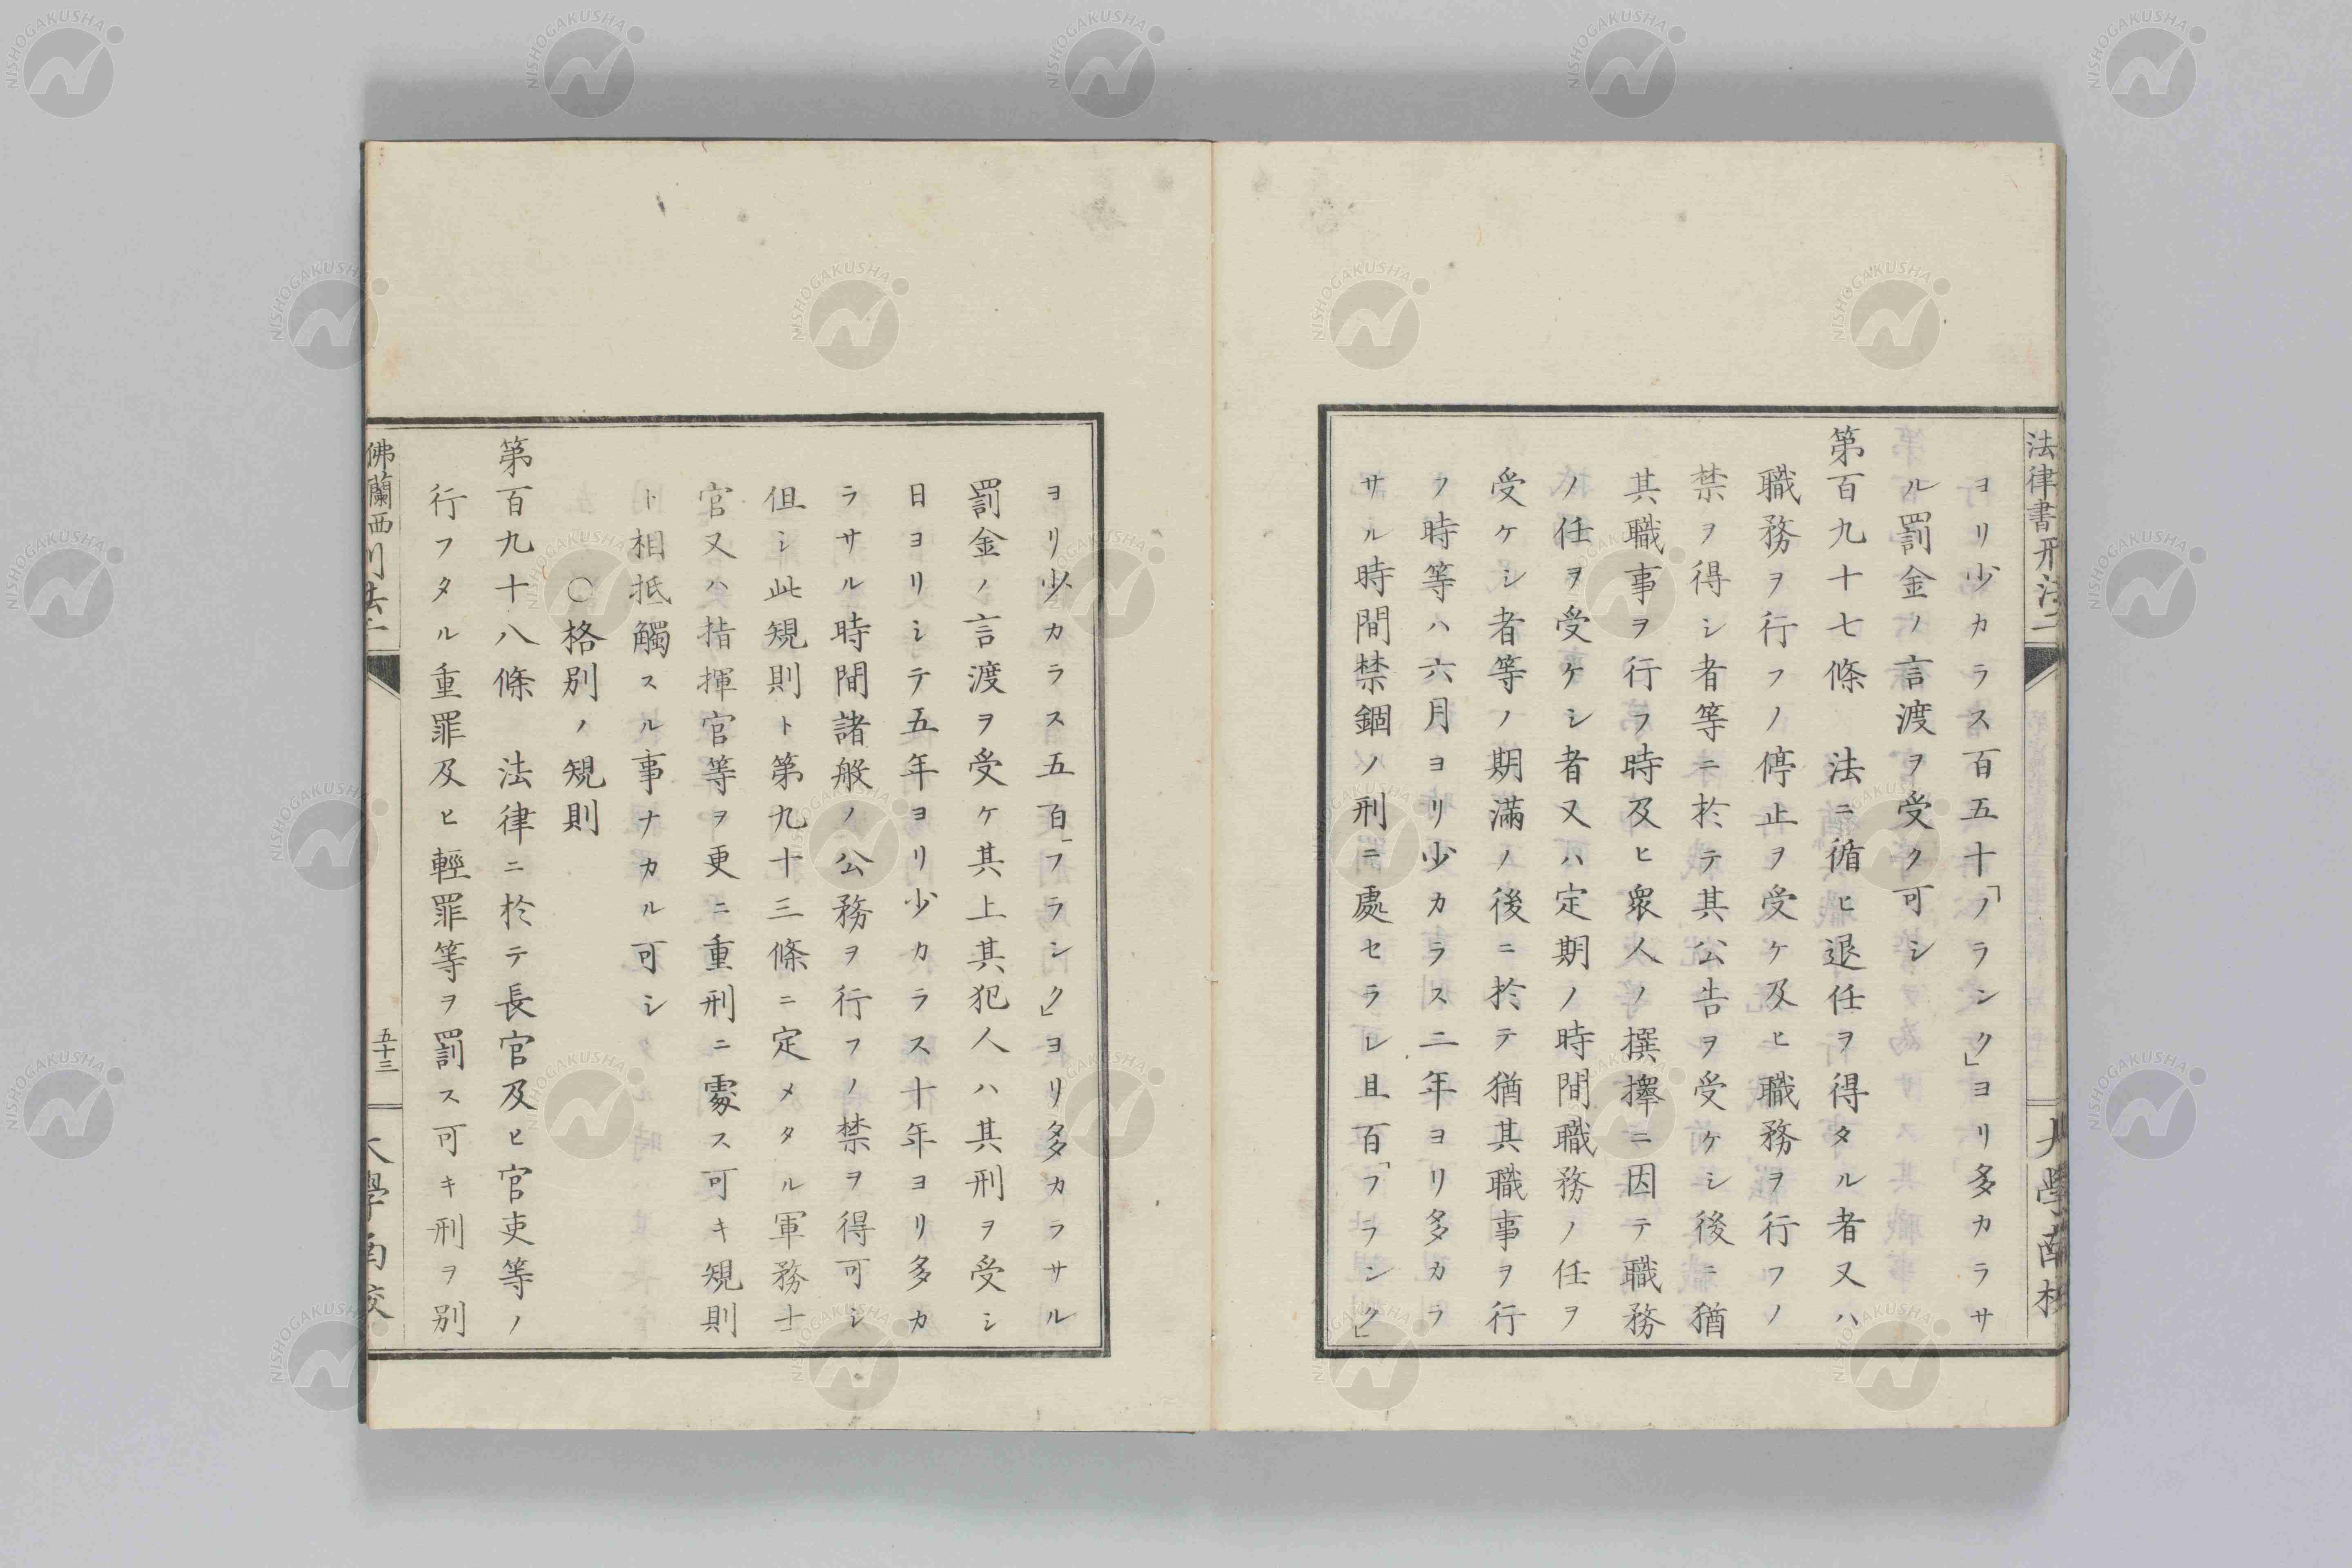 法律書刑法二
ヨリ少カラス百五十「ノランク」ヨリ多カラサ
ル罰金ノ言渡ヲ受ク可シ
第百九十七條　法ニ循ヒ退任ヲ得タル者又ハ
職務ヲ行フノ停止ヲ受ケ及ヒ職務ヲ行フノ
禁ヲ得シ者等ニ於テ其公告ヲ受ケシ後ニ猶
其職事ヲ行ヲ時及ヒ衆人ノ撰擇ニ因テ職務
ノ任ヲ受ケシ者又ハ定期ノ時間職務ノ任ヲ
受ケシ者等ノ期滿ノ後ニ於テ猶其職事ヲ行
フ時等ハ六月ヨリ少カラス二年ヨリ多カラ
サル時間禁錮ノ刑ニ處セラレ且百「フランク」
ヨリ少カラス五百「フラシク」ヨリ多カラサル
罰金ノ言渡ヲ受ケ其上其犯人ハ其刑ヲ受シ
日ヨリシテ五年ヨリ少カラス十年ヨリ多カ
ラサル時間諸般ノ公務ヲ行フノ禁ヲ得可シ
但シ此規則ト第九十三條ニ定メタル軍務士
官又ハ指揮官等ヲ更ニ重刑ニ處ス可キ規則
ト相抵觸スル事ナカル可シ
○格別ノ規則
第百九十八條　法律ニ於テ長官及ヒ官吏等ノ
行フタル重罪及ヒ輕罪等ヲ罰ス可キ刑ヲ別
佛蘭西
五十三
NISHOGAKUSHA